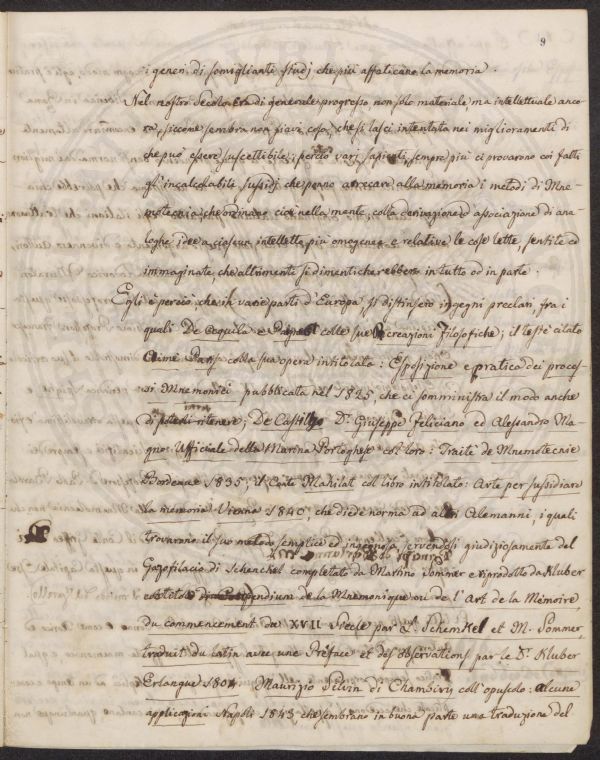 9
i generi di somiglianti studj che più affaticano la memoria.
Nel nostro Secolo Era di generale progresso non solo materiale ma intellettuale anco-
ra, siccome sembra non siavi cosa, che si lasci intentata nei miglioramenti di
che può essere suscettibile, perciò varj sapienti sempre più ci provarono coi fatti
gl'incalcolabili sussidj che ponno arrecare alla memoria i metodi di Mne-
motecnia che ordinano cioè nella mente, colla derivazione ed associazione di ana-
loghe idee a ciascun intelletto più omogenee e relative le cose lette, sentite ed
immaginate, che altrimenti si dimenticherebbero in tutto od in parte.
Egli è perciò che in varie parti d'Europa, si distinsero ingegni preclari, fra i
quali De Coquila e colle sue Recreazioni Filosofiche; il testè citato
Aimè Paris colla sua opera intitolata: Esposizione e pratica dei proces-
si Mnemonici pubblicata nel 1825, che ci somministra il modo anche
di ritenere; De Castilho Dr. Giuseppe Feliciano ed Alessandro Ma-
gno: Ufficiale della Marina Portoghese col loro: Traité de Mnemotecnie
Bordeaux 1835; il Conte Mahilat col libro intitolato: Arte per sussidiare
la memoria Vienna 1840, che diede norma ad altri Alemanni, i quali
trovarono il suo metodo semplice ed ingegnoso servendosi giudiziosamente del
Gazofilacio di Schenckel completato da Martino Sommer e riprodotto da Kluber
Compendium de la Mnemonique ou de l'Art de la Mémoire,
du commencement du XVII Siecle par L. Schemkel et M. Sommer,
traduit du latin avec une Préface et des observations par le Dr. Kluber
Erlangue 1804. Maurizio Silvin di Chambiry coll'opuscolo: alcune
applicazioni Napoli 1843 che sembrano in buona parte una traduzione del